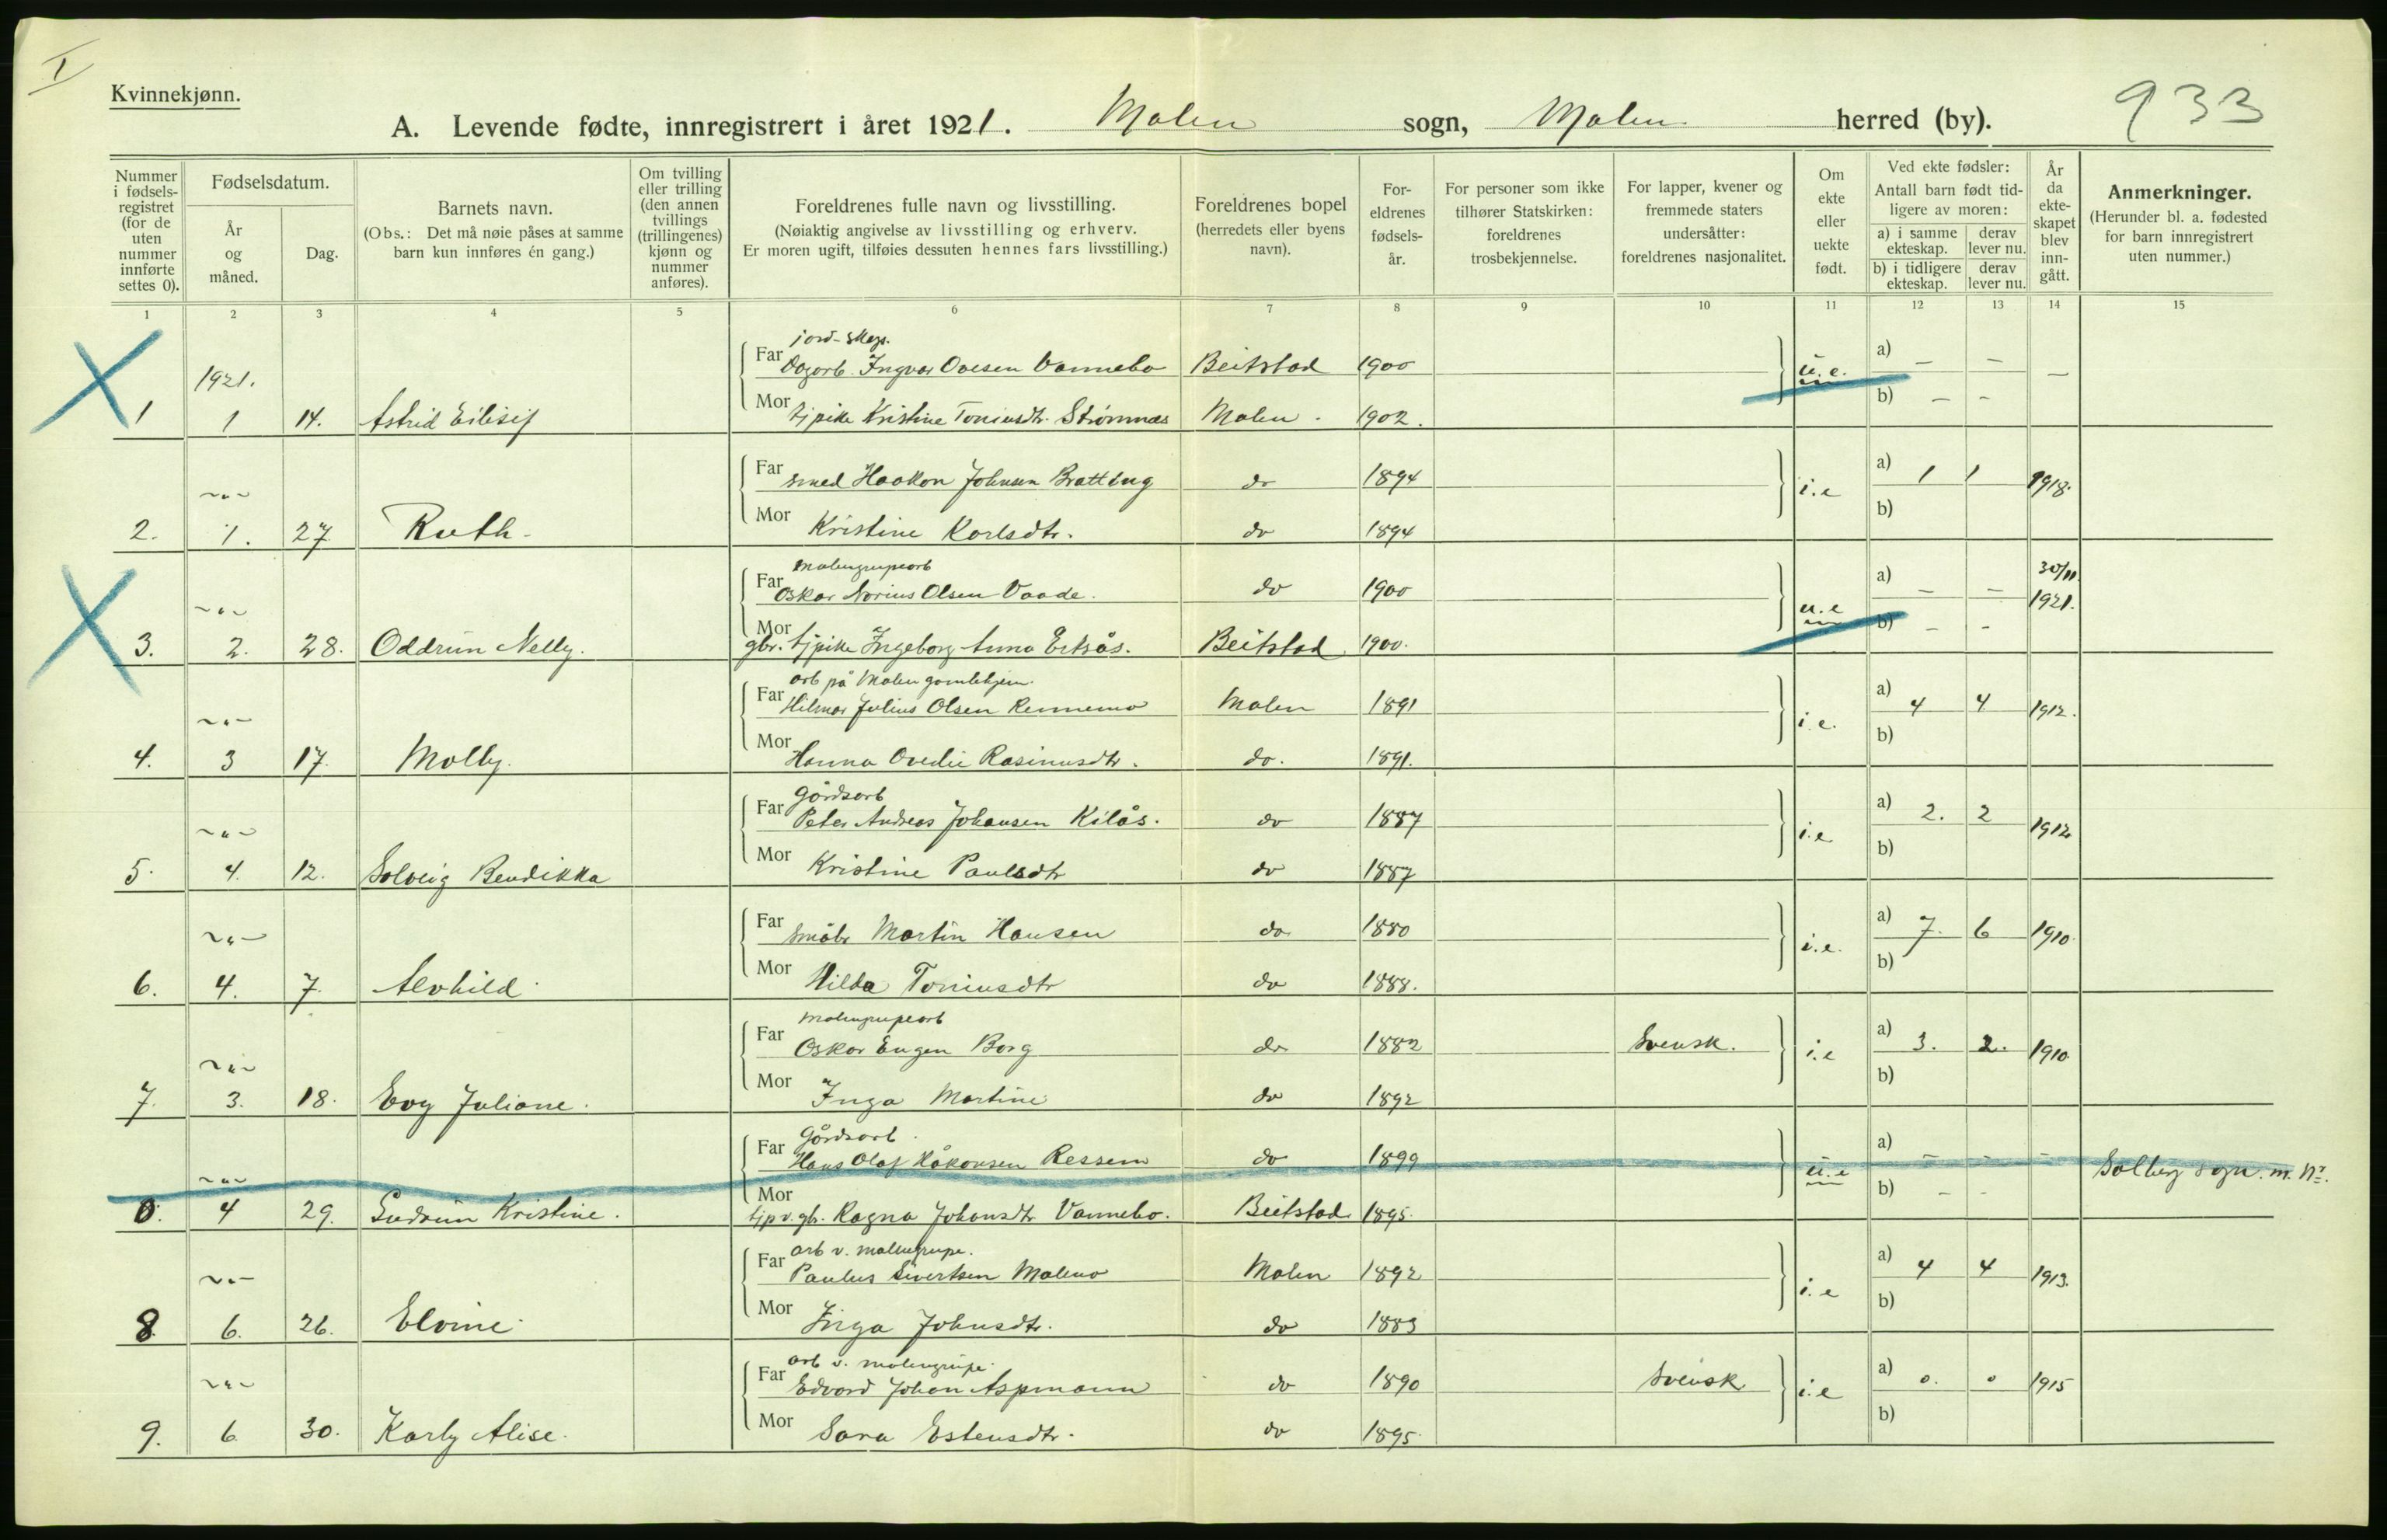 I
Kvinnekjønn.
933
A. Levende fødte, innregistrert i året 1921. Malm sogn, Malm herred (by).
Nummer i fødsels-registret (for de uten nummer innførte settes 0).
Fødselsdatum.
År og måned.
Dag.
Barnets navn.
(Obs.: Det må nøie påses at samme barn kun innføres én gang.)
Om tvilling eller trilling (den annen tvillings (trillingenes) kjønn og nummer anføres).
Foreldrenes fulle navn og livsstilling.
(Nøiaktig angivelse av livsstilling og erhverv.
Er moren ugift, tilføies dessuten hennes fars livsstilling.)
Foreldrenes bopel (herredets eller byens navn).
For-eldrenes fødsels-år.
For personer som ikke tilhører Statskirken: foreldrenes trosbekjennelse.
For lapper, kvener og fremmede staters undersåtter: foreldrenes nasjonalitet.
Om ekte eller uekte født.
Ved ekte fødsler:
Antall barn født tid-ligere av moren:
a) i samme ekteskap. derav lever nu.
b) i tidligere ekteskap. derav lever nu.
År da ekte-skapet blev inn-gått.
Anmerkninger.
(Herunder bl. a. fødested for barn innregistrert uten nummer.)
1 2 3 4 5 6 7 8 9 10 11 12 13 14 15
jord- skogs.
1921. Far Dagarb. Ingvar Ovesen Vannebo Beitstad 1900 u.e. a) – – –
1 1 14. Astrid Eilisif Mor tjpike Kristine Toniusdtr. Strømnæs Malm. 1902. b) – –
~"~ Far smed Haakon Johnsen Brattbug do 1894 i.e a) 1 1 1918.
2. 1. 27 Ruth. Mor Kristine Karlsdtr. do 1894 b)
Malmgrupearb
~"~ Far Oskar Norius Olsen Vaade. do 1900 u.e a) – – 30/11 1921.
3. 2. 28. Oddrun Nelly. Mor gbr. tjpike Ingeborg Anna Ertsås. Beitstad 1900. b) – –
arb på Malm gamlehjem.
~"~ Far Hilmar Julius Olsen Rennemo Malm 1891 i.e. a) 4 4 1912.
4. 3 17. Molly. Mor Hanna Ovedie Rasinusdtr. do. 1891. b)
Gårdsarb
~"~ Far Peter Andreas Johansen Kilås. do 1887 i.e a) 2. 2 1912
5. 4. 12. Solveig Bendikka Mor Kristine Paulsdtr do 1887 b)
~"~ Far småbr Martin Hansen do 1880 i.e. a) 7. 6 1910.
6. 4. 7. Alvhild. Mor Hilda Toniusdtr do 1888. b)
Malmgrupearb
~"~ Far Oskar Eugen Borg do 1882 Svensk. i.e a) 3. 2. 1910
7. 3. 18. Evy Juliane. Mor Inga Martine do 1892 b)
Gårdsarb.
~"~ Far Hans Olaf Håkonsen Ressem do 1899 u.e a) – – – Solberg sogn. m. Nr.
0. 4 29. Gudrun Kristine. Mor tjp v. gbr. Ragna Johansdtr Vannebo. Beitstad 1895. b) – –
arb v. malmgrupe.
~"~ Far Paulus Sivertsen Malmo Malm 1892 i.e a) 4 4 1913.
8. 6. 26. Elvine. Mor Inga Johnsdtr. do 1883 b)
arb v. malmgrupe.
~"~ Far Edvard Johan Aspmann do 1890 Svensk i.e a) 0. 0 1915
9. 6 30. Karly Alise. Mor Sara Estensdtr. do 1895. b)